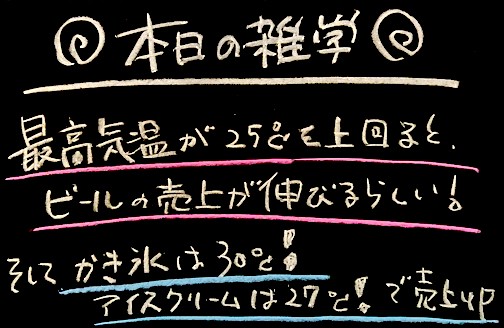 本日の雑学
最高気温が25℃を上回ると、
ビールの売上が伸びるらしい!
そして かき氷は30℃!
アイスクリームは27℃!で売上up